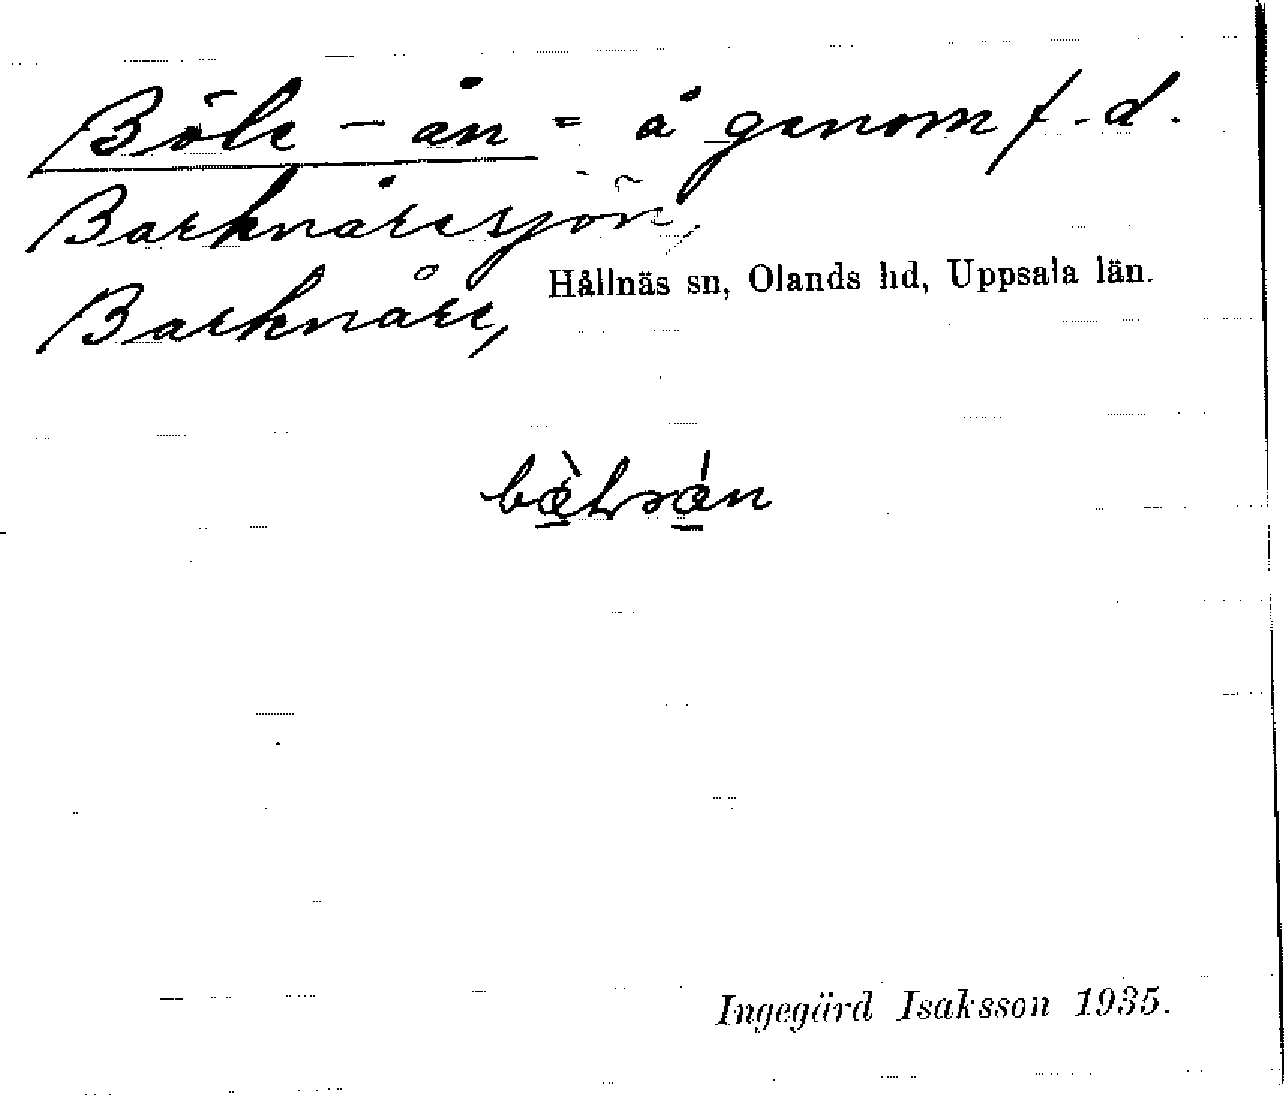 Böle - ån = å genom f.d.
Barknåresjön,
Barknåre,
Hållnäs sn, Olands hd, Uppsala län.
Ingegärd Isaksson 1935.